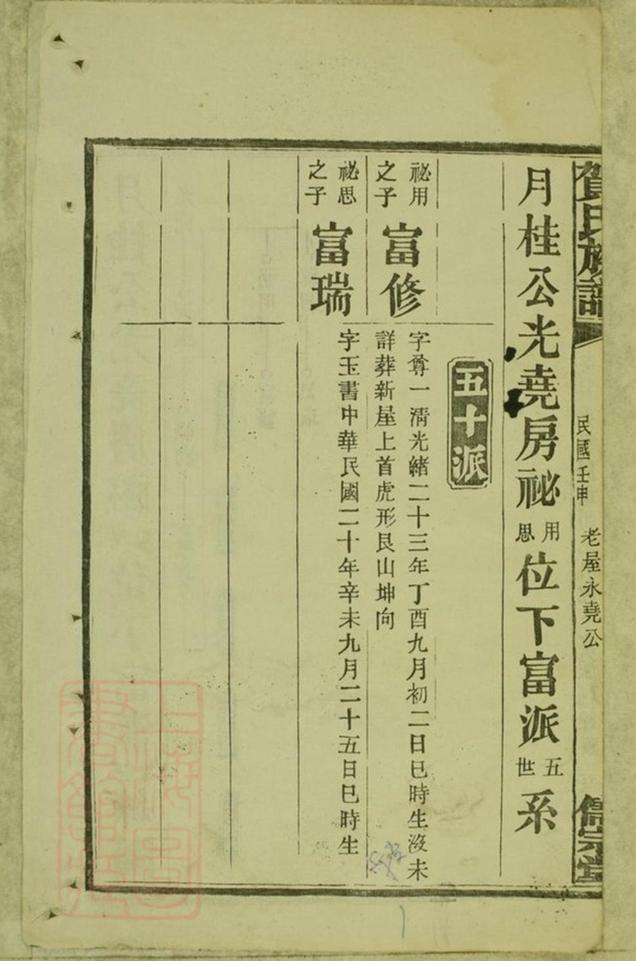 賀氏族譜
民國壬申
老屋永堯公
儒宗堂
月桂公光堯房祕用思位下富派五世系
五十派
祕用之子
富修
字尊一清光緒二十三年丁酉九月初二日巳時生沒未
詳葬新屋上首虎形艮山坤向
祕思之子
富瑞
字玉書中華民國二十年辛未九月二十五日巳時生